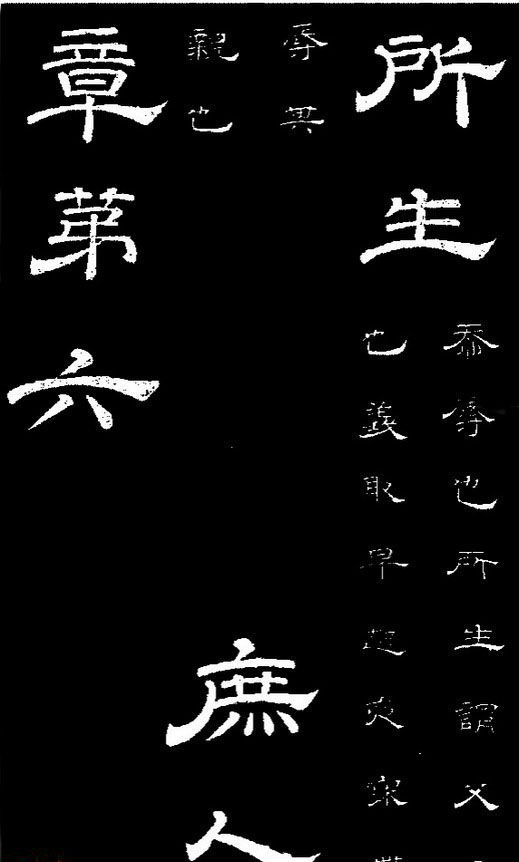 所生
忝辱也所生謂父
也義取早起夜寐
辱其
親也
庶人
章苐六